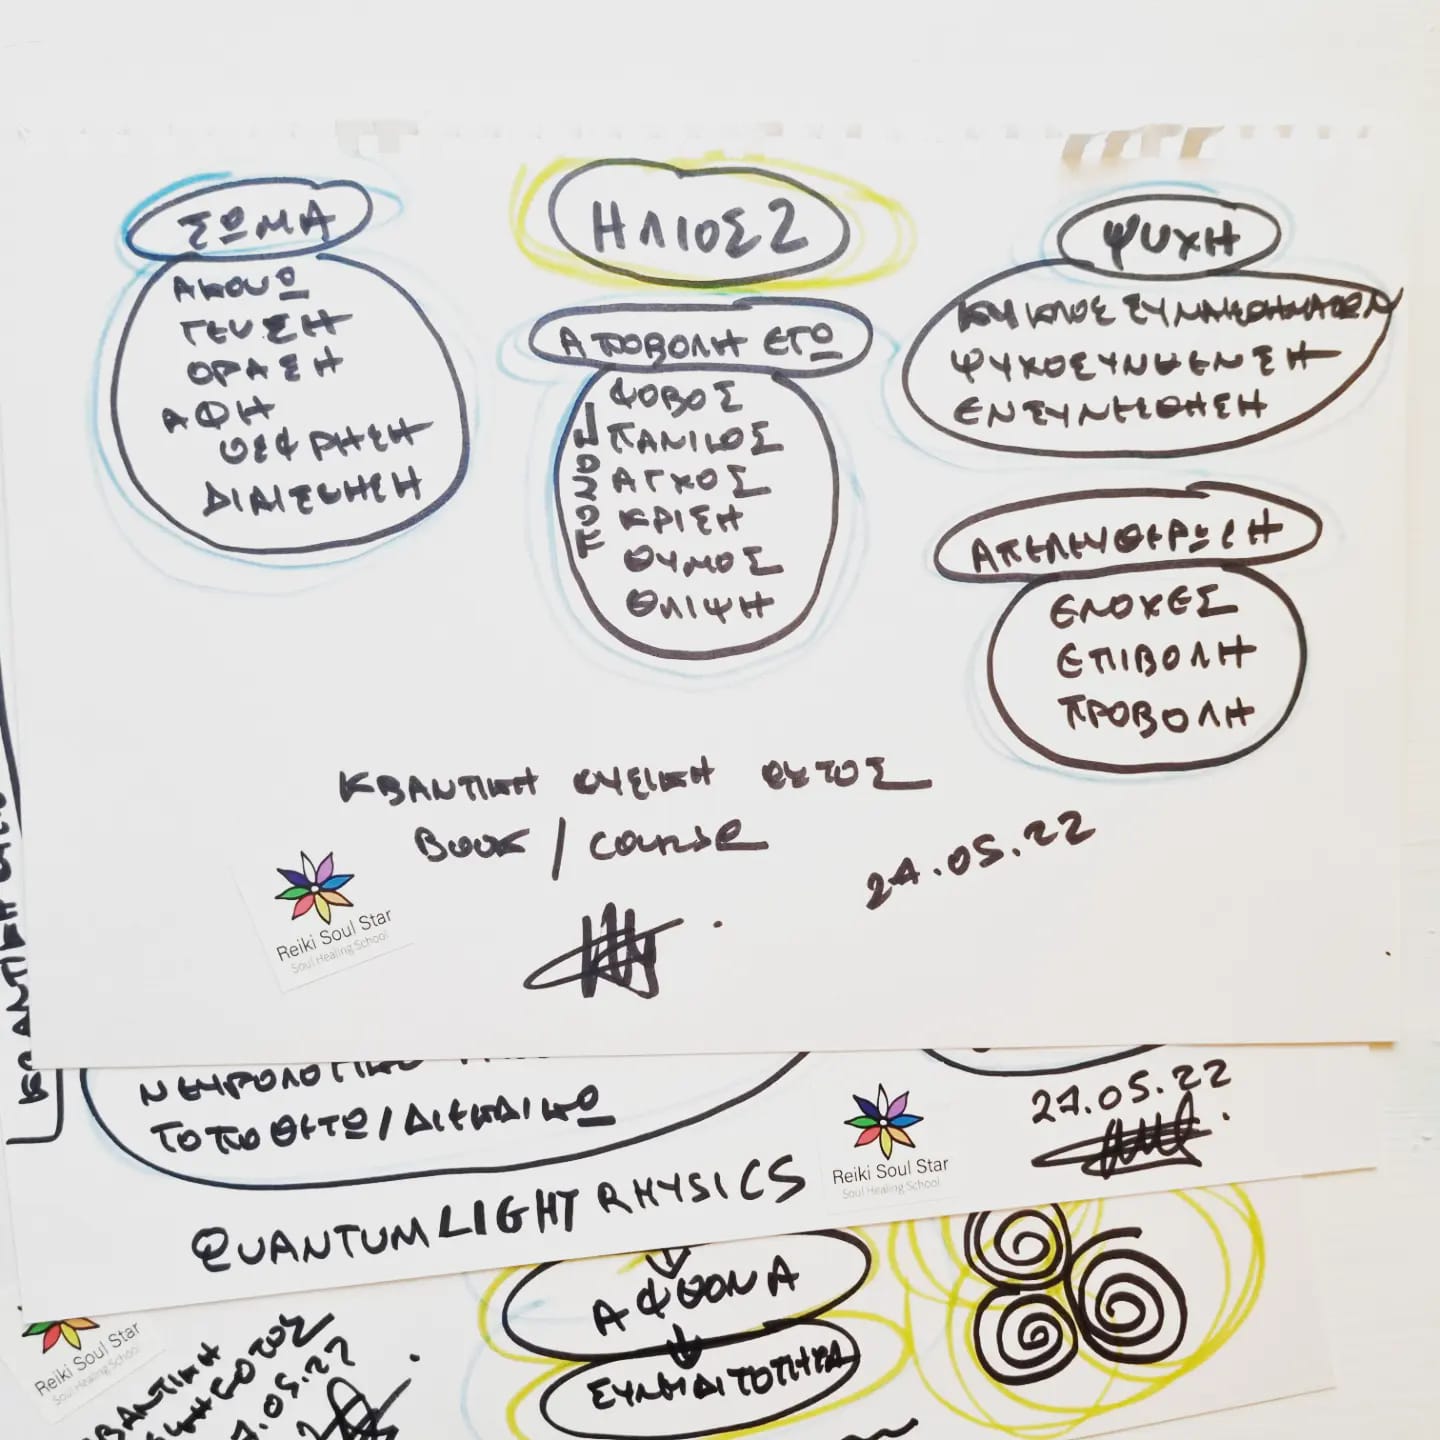 ΣΩΜΑ
ΑΚΟΥΩ
ΓΕΥΣΗ
ΟΡΑΣΗ
ΑΦΗ
ΟΣΦΡΗΣΗ
ΔΙΑΙΣΘΗΣΗ
ΗΛΙΟΣ 2
ΑΠΟΒΟΛΗ ΕΓΩ
ΦΟΒΟΣ
ΠΑΝΙΚΟΣ
ΑΓΧΟΣ
ΚΡΙΣΗ
ΘΥΜΟΣ
ΘΛΙΨΗ
ΨΥΧΗ
ΚΥΚΛΟΣ ΣΥΝΑΙΣΘΗΜΑΤΩΝ
ΨΥΧΟΣΥΝΘΕΝΣΗ
ΕΝΣΥΝΕΣΘΗΣΗ
ΑΠΕΛΕΥΘΕΡΩΣΗ
ΕΝΟΧΕΣ
ΕΠΙΒΟΛΗ
ΠΡΟΒΟΛΗ
ΚΒΑΝΤΙΚΗ ΦΥΣΙΚΗ ΦΩΤΟΣ
BOOK / COURSE
27.05.22
Reiki Soul Star
Soul Healing School
ΝΕΥΡΟΛΟΓΙΚΟ
ΤΟΠΟΘΕΤΩ / ΔΙΕΚΔΙΚΩ
27.05.22
Reiki Soul Star
Soul Healing School
QUANTUM LIGHT PHYSICS
ΑΦΘΟΝΑ
ΣΥΝΕΙΔΙΤΟΤΗΤΑ
Reiki Soul Star
Soul Healing School
ΚΒΑΝΤΙΚΗ